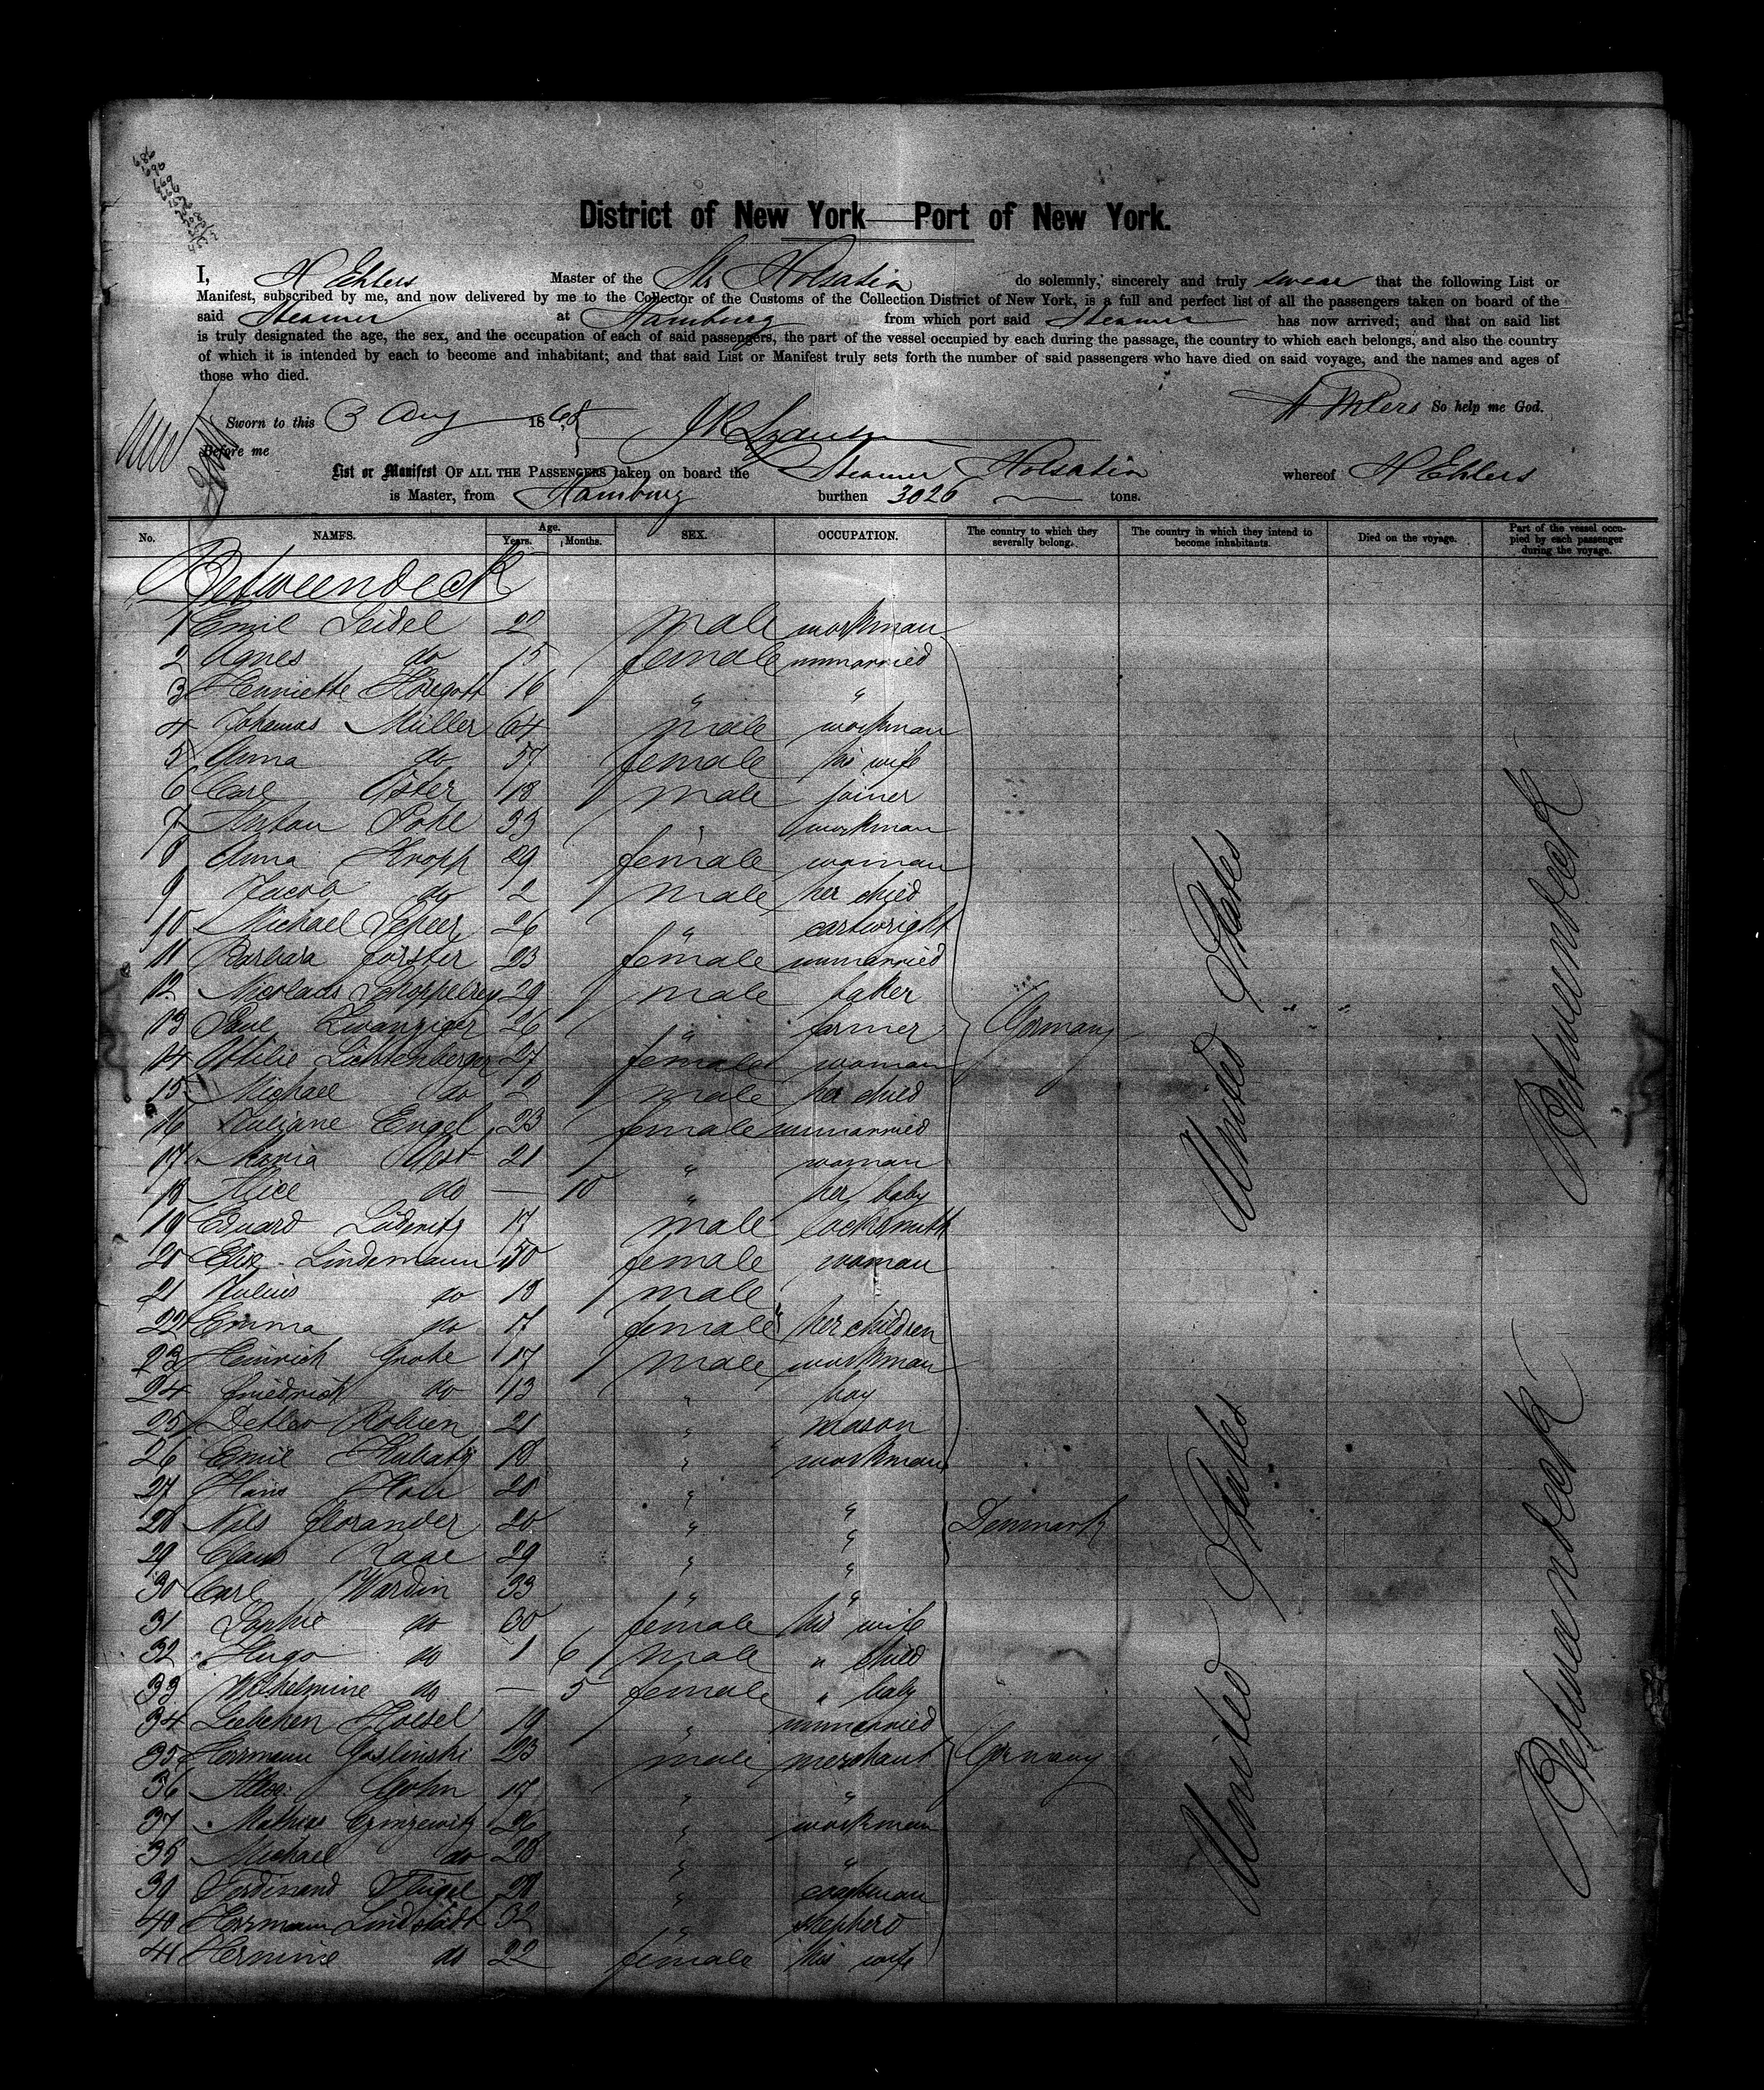 District of New York—Port of New York.
I, H Ehlers Master of the Str Holsatia do solemnly, sincerely and truly swear that the following List or
Manifest, subscribed by me, and now delivered by me to the Collector of the Customs of the Collection District of New York, is a full and perfect list of all the passengers taken on board of the
said Steamer at Hamburg from which port said Steamer has now arrived; and that on said list
is truly designated the age, the sex, and the occupation of each of said passengers, the part of the vessel occupied by each during the passage, the country to which each belongs, and also the country
of which it is intended by each to become and inhabitant; and that said List or Manifest truly sets forth the number of said passengers who have died on said voyage, and the names and ages of
those who died.
H Ehlers So help me God.
Sworn to this 3 Aug 1868
Before me
List or Manifest OF ALL THE PASSENGERS taken on board the Steamer Holsatia whereof H Ehlers
is Master, from Hamburg burthen 3026 tons.
No. NAMES. Age. Years. Months. SEX. OCCUPATION. The country to which they severally belong. The country in which they intend to become inhabitants. Died on the voyage. Part of the vessel occupied by each passenger during the voyage.
Betweendeck
1 Emil Seidel 22 male workman
2 Agnes do 15 female unmarried
3 Henriette 16 " "
4 Johannes Müller 64 male workman
5 Anna do 57 female his wife
6 Carl Oster 18 male joiner
7 Anton Pohl 33 " workman
8 Anna Knopp 29 female woman
9 Jacob do 2 male her child
10 Michael Scheer 26 " cartwright
11 Barbara Forster 23 female unmarried
12 Nicolaus 29 male baker
13 Paul Zwanziger 26 " farmer Germany
14 Ottilie Lichtenberger 27 female woman
15 Michael do 2 male her child
16 Juliane Engel 23 female unmarried
17 Maria West 21 " woman
18 Alice do — 10 " her baby
19 Eduard Lüderitz 17 male locksmith
20 Elise Lindemann 50 female woman
21 Julius do 18 male
22 Emma do 17 female her children
23 Heinrich Grote 17 male workman
24 Friedrich do 13 " boy
25 Detlev 21 " mason
26 Emil 18 " workman
27 Hans 20 " "
28 Nils Florander 20 " " Denmark
29 Claus 29 " "
30 Carl Wardin 33 " "
31 Sophie do 30 female his wife
32 Hugo do 1 6 male " child
33 Wilhelmine do — 5 female " baby
34 Hoesel 19 " unmarried
35 Herrmann Goslinski 23 male merchant Germany
36 Cohn 17 " "
37 Mathias 26 " workman
38 Michael do 28 " "
39 Ferdinand Flügel 28 " coachman
40 Herrmann Lindstädt 32 " shepherd
41 Hermine do 22 female his wife
United States
United States
Betweendeck
Betweendeck